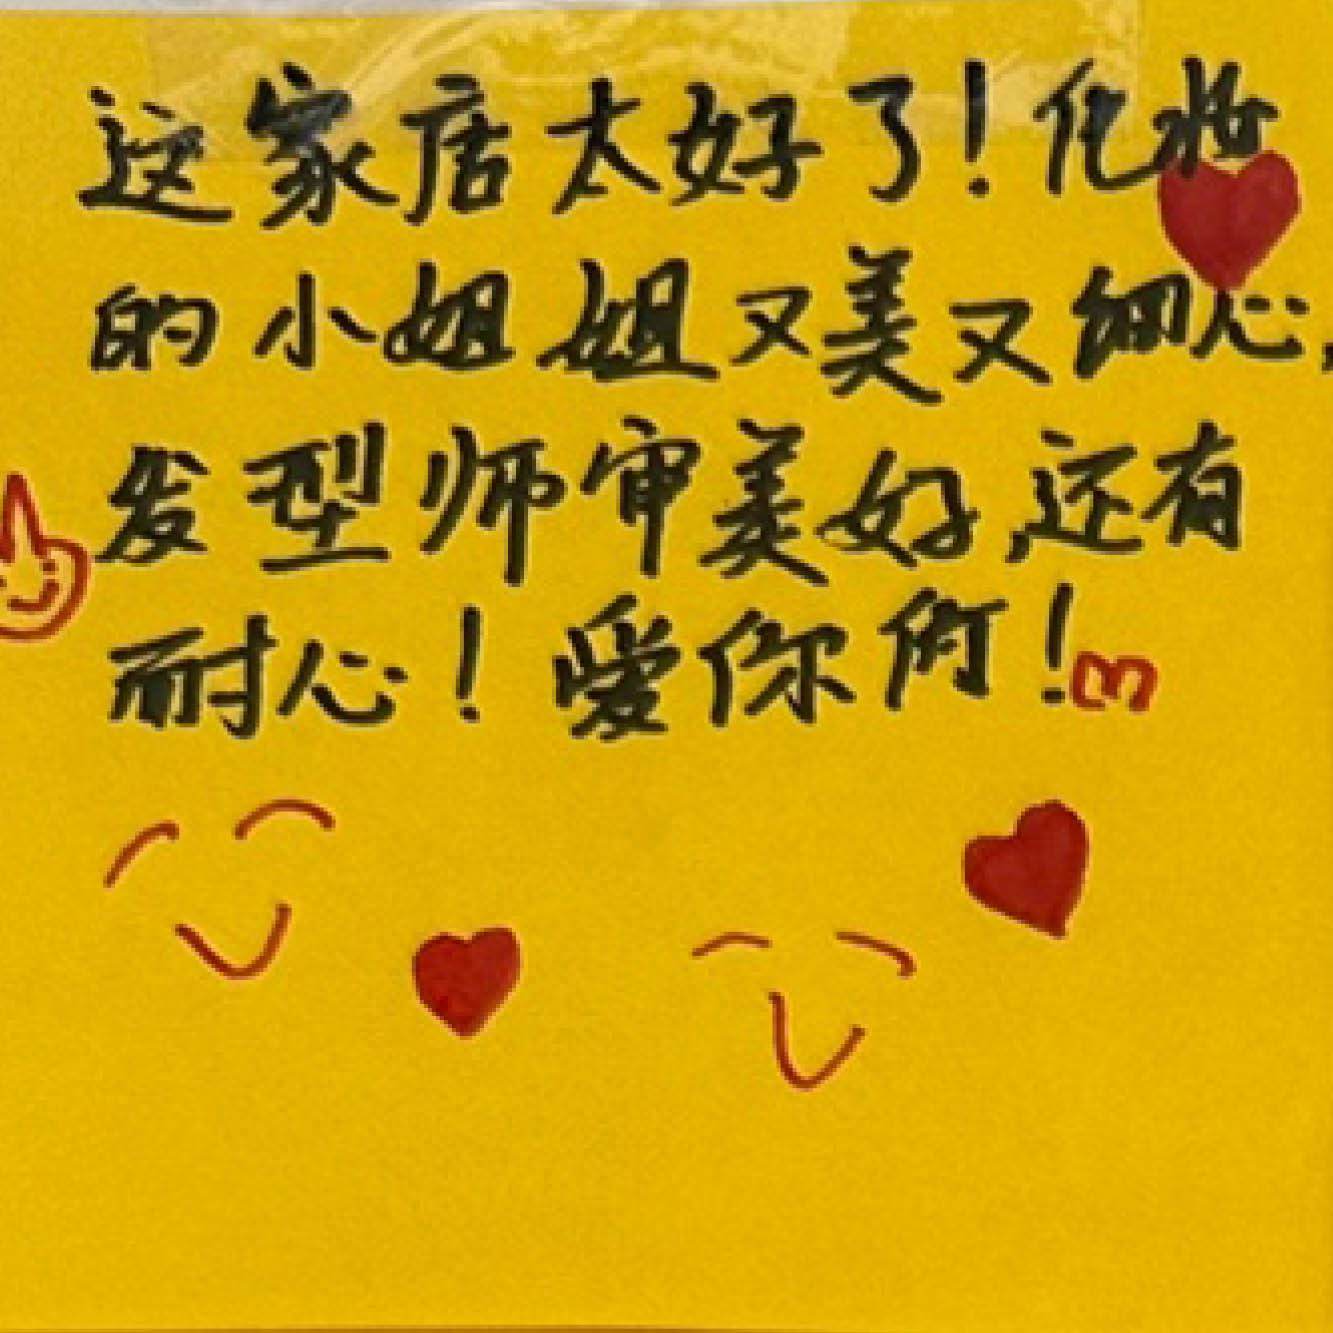 这家店太好了！化妆
的小姐姐又美又细心，
发型师审美好，还有
耐心！爱你们！